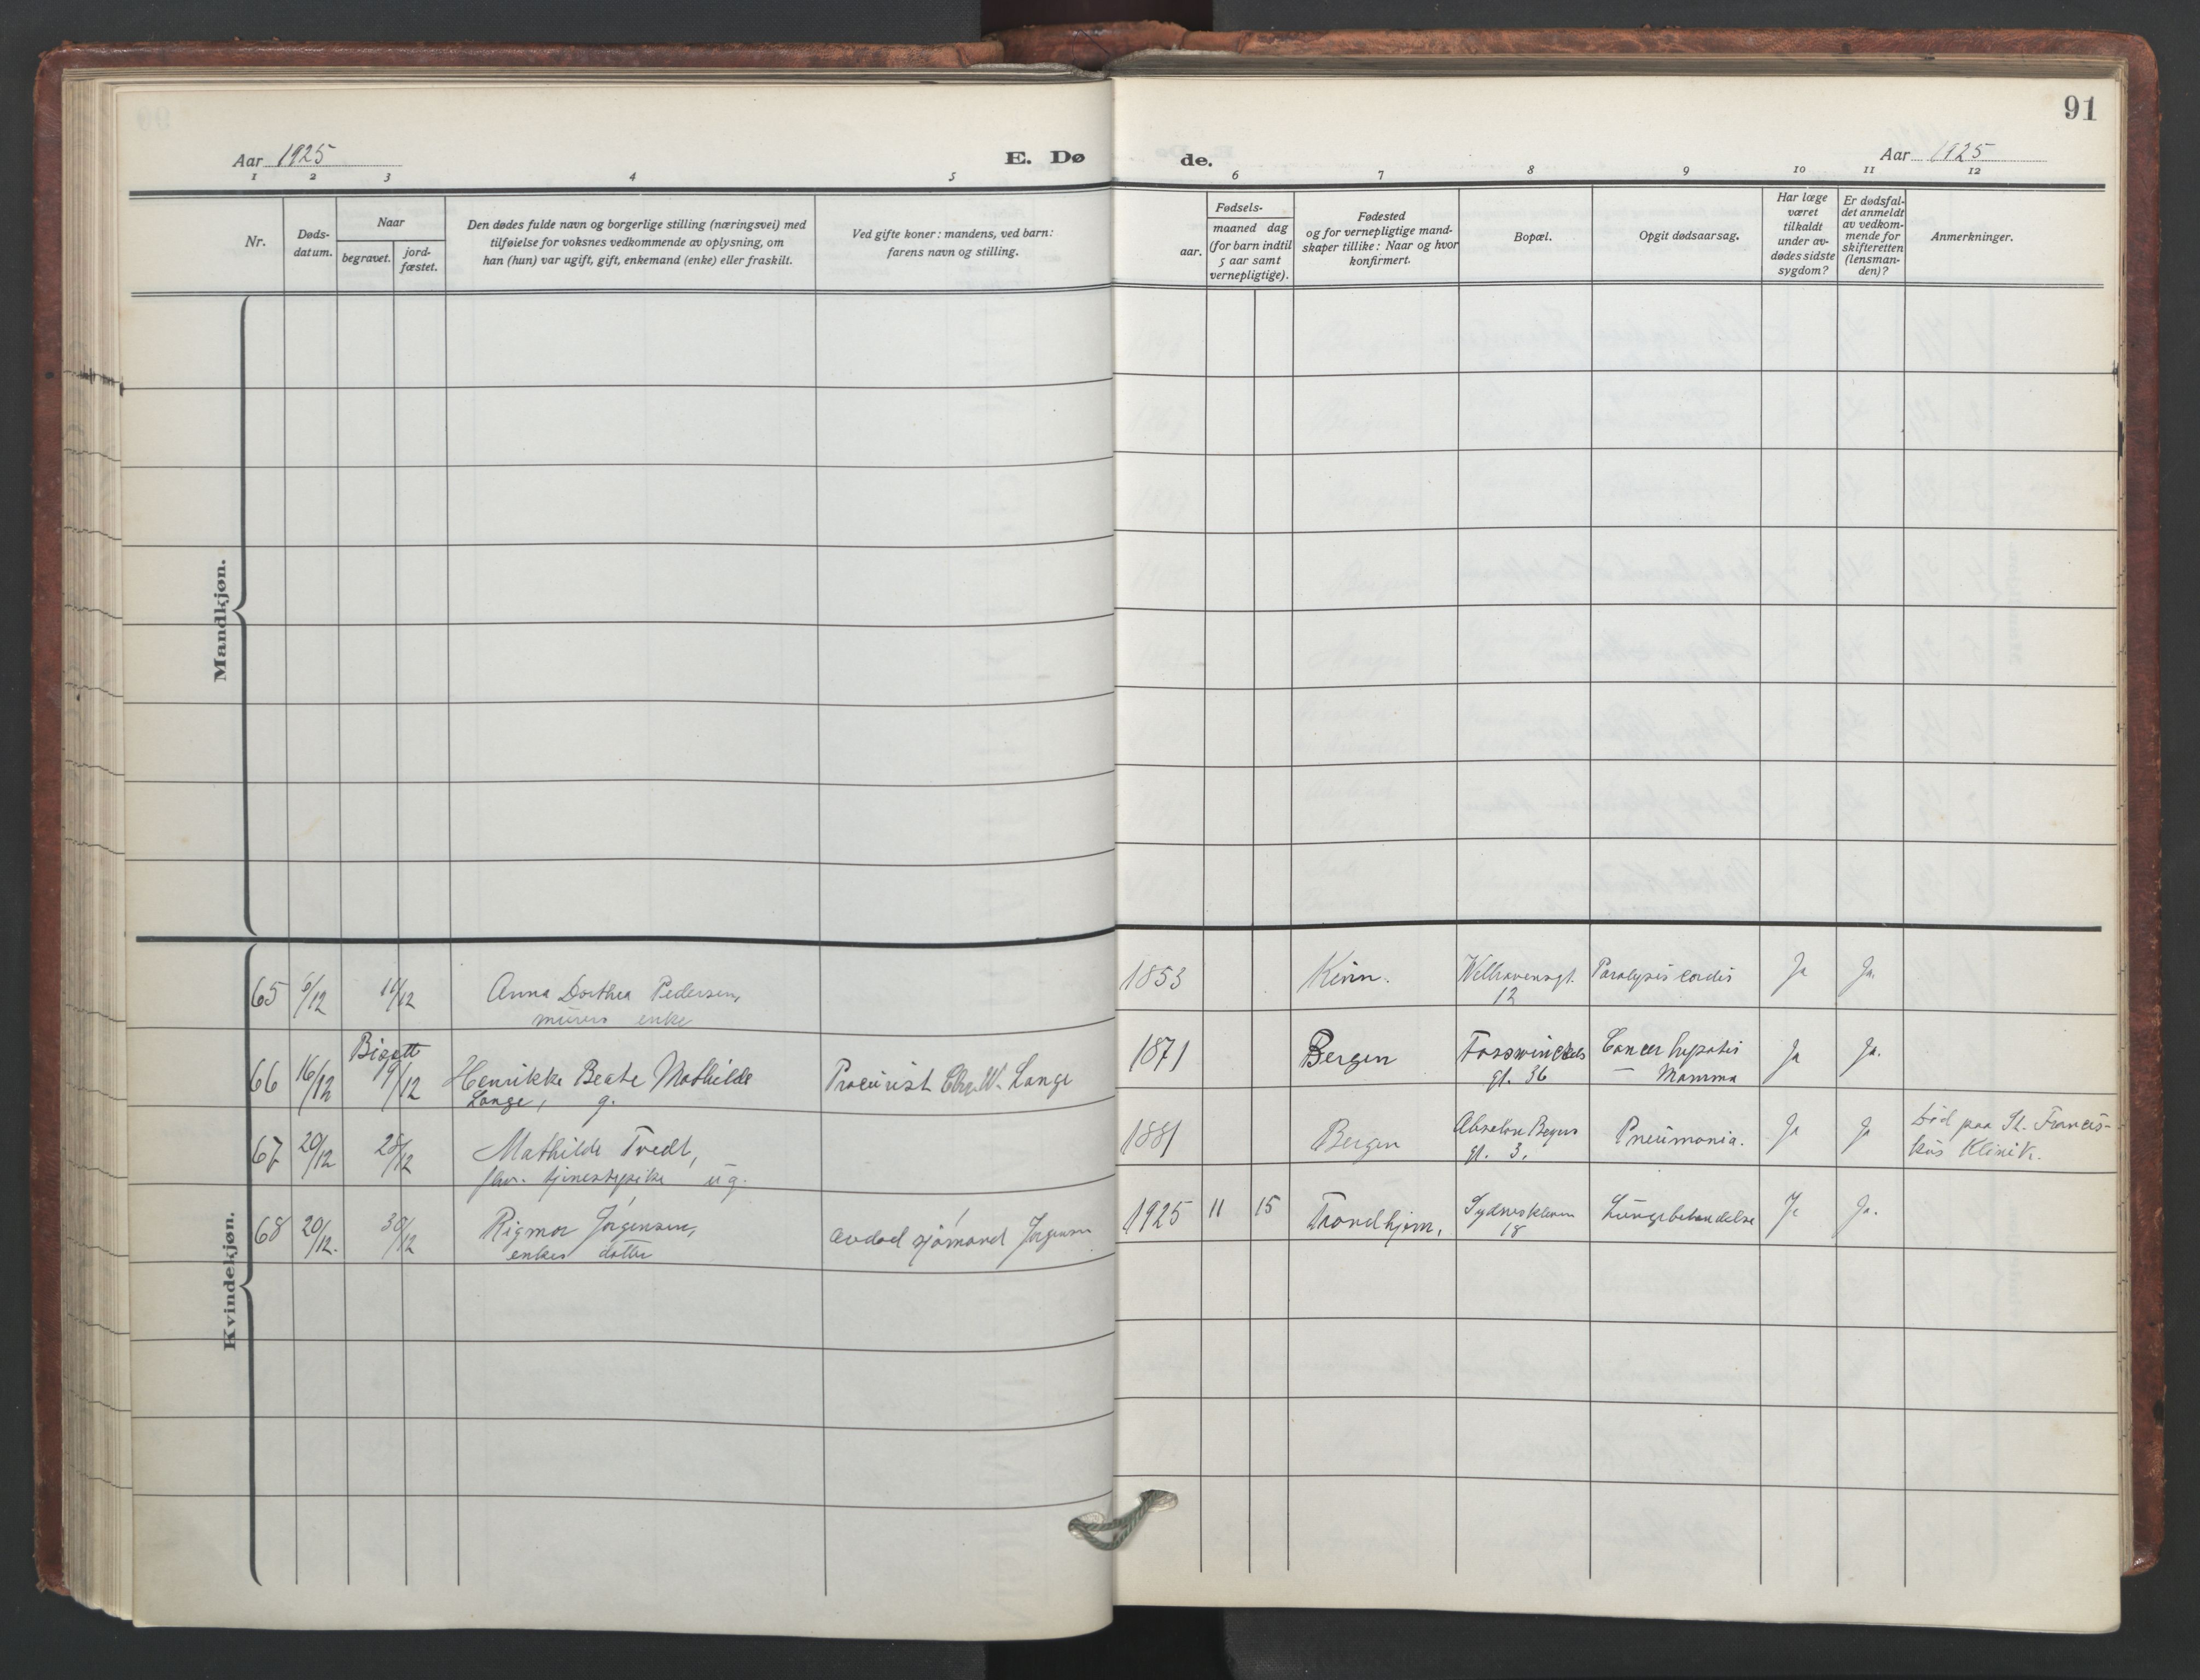 91
Aar 1925
E. Dø
de.
Aar 1925
1 2 3 4 5 6 7 8 9 10 11 12
Nr.
Døds-
datum.
Naar
begravet.
jord-
fæstet.
Den dødes fulde navn og borgerlige stilling (næringsvei) med
tilføielse for voksnes vedkommende av oplysning, om
han (hun) var ugift, gift, enkemand (enke) eller fraskilt.
Ved gifte koner: mandens, ved barn:
farens navn og stilling.
Fødsels-
aar.
maaned dag
(for barn indtil
5 aar samt
vernepligtige).
Fødested
og for vernepligtige mand-
skaper tillike: Naar og hvor
konfirmert.
Bopæl.
Opgit dødsaarsag.
Har læge
været
tilkaldt
under av-
dødes sidste
sygdom?
Er dødsfal-
det anmeldt
av vedkom-
mende for
skifteretten
(lensman-
den)?
Anmerkninger.
Mandkjøn.
Kvindekjøn.
65 6/12 11/12 Anna Dorthea Pedersen,
murers enke
1853 Kinn. Welhavensgt.
12
Paralysis cordis Ja Ja.
66 16/12 Bisatt
19/12
Henrikke Beate Mathilde
Lange, g.
Procurist Chr. W. Lange
1871 Bergen Fosswinckels
gt. 36
Cancer hepatis
— Mamma
Ja Ja.
67 20/12 28/12 Mathilde Tvedt,
fhv. tjenestepike ug.
1881 Bergen Absalon Beyers
gt. 3.
Pneumonia. Ja Ja
Død paa St. Francis-
kus Klinik.
68 20/12. 30/12 Rigmor Jørgensen,
enkes datter
avdød sjømand Jørgensen
1925 11 15 Trondhjem.
18
Lungebetændelse Ja Ja.